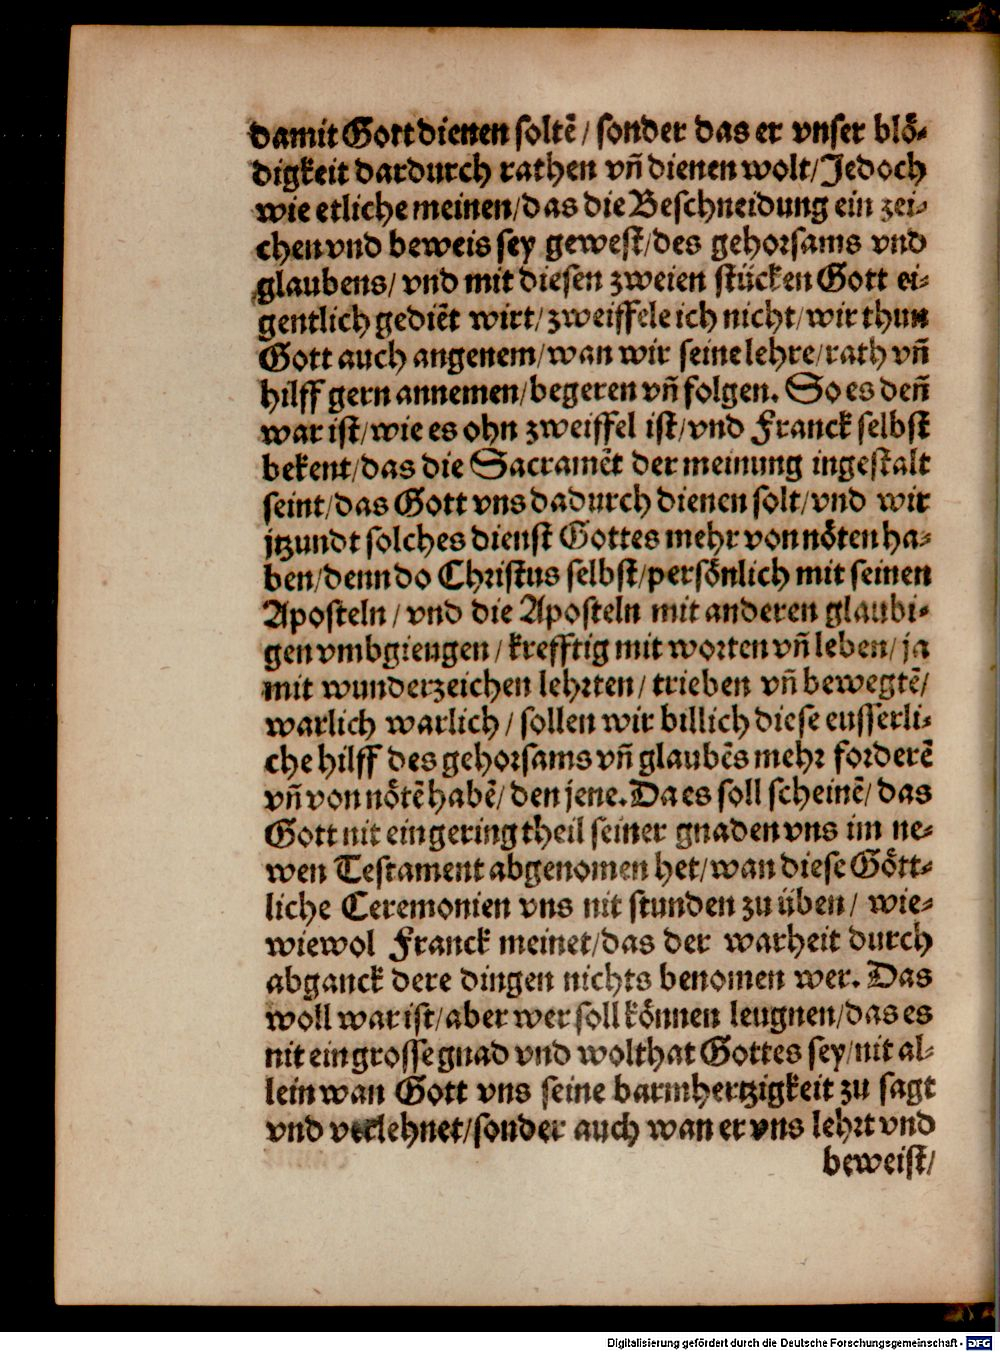 damit Gott dienen soltē / sonder das er vnser blö⸗
digkeit dardurch rathen vñ dienen wolt/ Jedoch
wie etliche meinen/ das die Beschneidung ein zei⸗
chen vnd beweis sey gewest/ des gehorsams vnd
glaubens/ vnd mit diesen zweien stücken Gott ei⸗
gentlich gediēt wirt/ zweiffele ich nicht/ wir thun
Gott auch angenem/ wan wir seine lehre/ rath vñ
hilff gern annemen/ begeren vñ folgen. So es deñ
war ist/ wie es ohn zweiffel ist/ vnd Franck selbst
bekent/ das die Sacramēt der meinung ingestalt
seint/ das Gott vns dadurch dienen solt/ vnd wir
jtzundt solches dienst Gottes mehr von nöten ha⸗
ben/ denn do Christus selbst/ persönlich mit seinen
Aposteln / vnd die Aposteln mit anderen glaubi⸗
gen vmbgiengen / krefftig mit worten vñ leben/ ja
mit wunderzeichen lehrten / trieben vñ bewegtē/
warlich warlich / sollen wir billich diese eusserli⸗
che hilff des gehorsams vñ glaubēs mehr forderē
vñ von nötē habē/ den jene. Da es soll scheinē/ das
Gott nit ein gering theil seiner gnaden vns im ne⸗
wen Testament abgenomen het/ wan diese Gött⸗
liche Ceremonien vns nit stunden zu üben / wie⸗
wiewol Franck meinet/ das der warheit durch
abganck dere dingen nichts benomen wer. Das
woll war ist/ aber wer soll können leugnen/ das es
nit ein grosse gnad vnd wolthat Gottes sey/ nit al⸗
lein wan Gott vns seine barmhertzigkeit zu sagt
vnd verlehnet/ sonder auch wan er vns lehrt vnd
beweist/
Digitalisierung gefördert durch die Deutsche Forschungsgemeinschaft - DFG